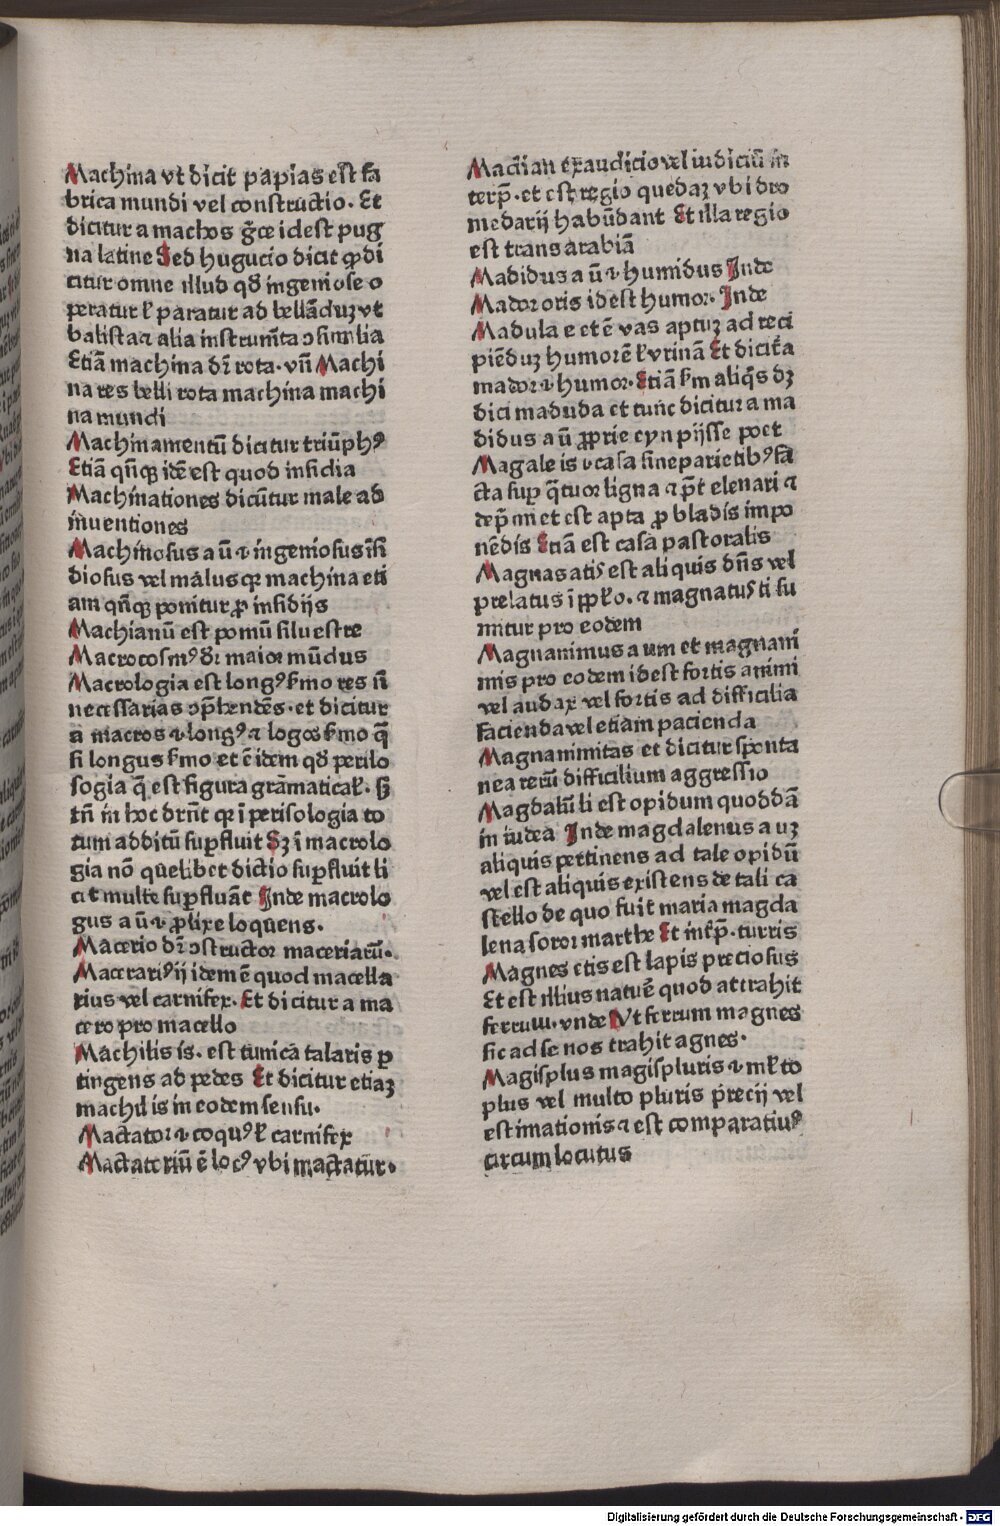 Machina vt dicit papias est fa
brica mundi vel constructio. Et
dicitur a machos g̃ce idest pug
na latine Sed hugucio dicit ꝙ di
citur omne illud qd̕ ingeniose o
peratur ł paratur ad bellãduȝ vt
balista ⁊ alia instrum̃ta ɔsimilia
Etiã machina dr̃ rota. vñ Machi
na res belli rota machina machi
na mundi
Machinamentũ dicitur triũphꝰ
Etiã qñqꝫ idẽ est quod insidia
Machinationes dicũtur male ad
inuentiones
Machinosus a ũ ⁊ ingeniosus ĩsi
diosus vel malus qꝛ machina eti
am qñqꝫ ponitur ꝓ insidijs
Machianũ est pomũ siluestre
Macrocosmꝰ dr̃ maior mũdus
Macrologia est longꝰ ẜmo res ñ
necessarias ɔp̃hendẽs. et dicitur
a macros ⁊ longꝰ ⁊ logos ẜmo q̃
si longus ẜmo et ẽ idem qd̕ perilo
sogia q̃ est figura grãmaticał. sꝫ
tñ in hoc drñt qꝛ ĩ perisologia to
tum additũ suꝑfluit Sꝫ ĩ macrolo
gia nõ quelibet dictio suꝑfluit li
cit multe suꝑfluãt Inde macrolo
gus a ũ ⁊ ꝓlixe loquens.
Macerio dr̃ ɔstructor maceriarũ.
Macerariꝰ ij idem ẽ quod macella
rius vel carnifex. Et dicitur a ma
cero pro macello
Machilis is. est tunica talaris ꝑ
tingens ad pedes Et dicitur etiaȝ
machil is in eodem sensu.
Mactator ⁊ coquꝰ ł carnifex
Mactatoriũ ẽ locꝰ vbi mactatur.
Madian exaudicio vel iudiciũ in
terp̃. et est regio quedaȝ vbi dro
medarij habũdant Et illa regio
est trans arabiã
Madidus a ũ ⁊ humidus Inde
Mador oris idest humor. Inde
Madula e et ẽ vas aptuȝ ad reci
piẽduȝ humorẽ ł vrinã Et dicit̃ a
mador ⁊ humor. Etiã ẜm aliq̃s dꝫ
dici maduda et tunc dicitur a ma
didus a ũ ꝓprie eyn pijsse poet
Magale is ⁊ casa sine parietibꝰ fa
cta suꝑ q̃tuor ligna ⁊ p̃t eleuari ⁊
dep̃mi et est apta ꝓ bladis impo
nẽdis Etiã est casa pastoralis
Magnas atis est aliquis dñs vel
prelatus ĩ ppło. ⁊ magnatus ti su
mitur pro eodem
Magnanimus a um et magnani
mis pro eodem idest fortis animi
vel audax vel fortis ad difficilia
facienda vel etiam pacienda
Magnanimitas et dicitur sponta
nea rerũ difficilium aggressio
Magdalũ li est opidum quoddã
in iudea Inde magdalenus a uȝ
aliquis pertinens ad tale opidũ
vel est aliquis existens de tali ca
stello de quo fuit maria magda
lena soror marthe Et inꝉp̃. turris
Magnes etis est lapis preciosus
Et est illius naturẽ quod attrahit
ferrum. vnde Vt ferrum magnes
sic ad se nos trahit agnes.
Magisplus magispluris ⁊ mło
plus vel multo pluris precij vel
estimationis ⁊ est comparatiuꝰ
circumlocutus
Digitalisierung gefördert durch die Deutsche Forschungsgemeinschaft - DFG